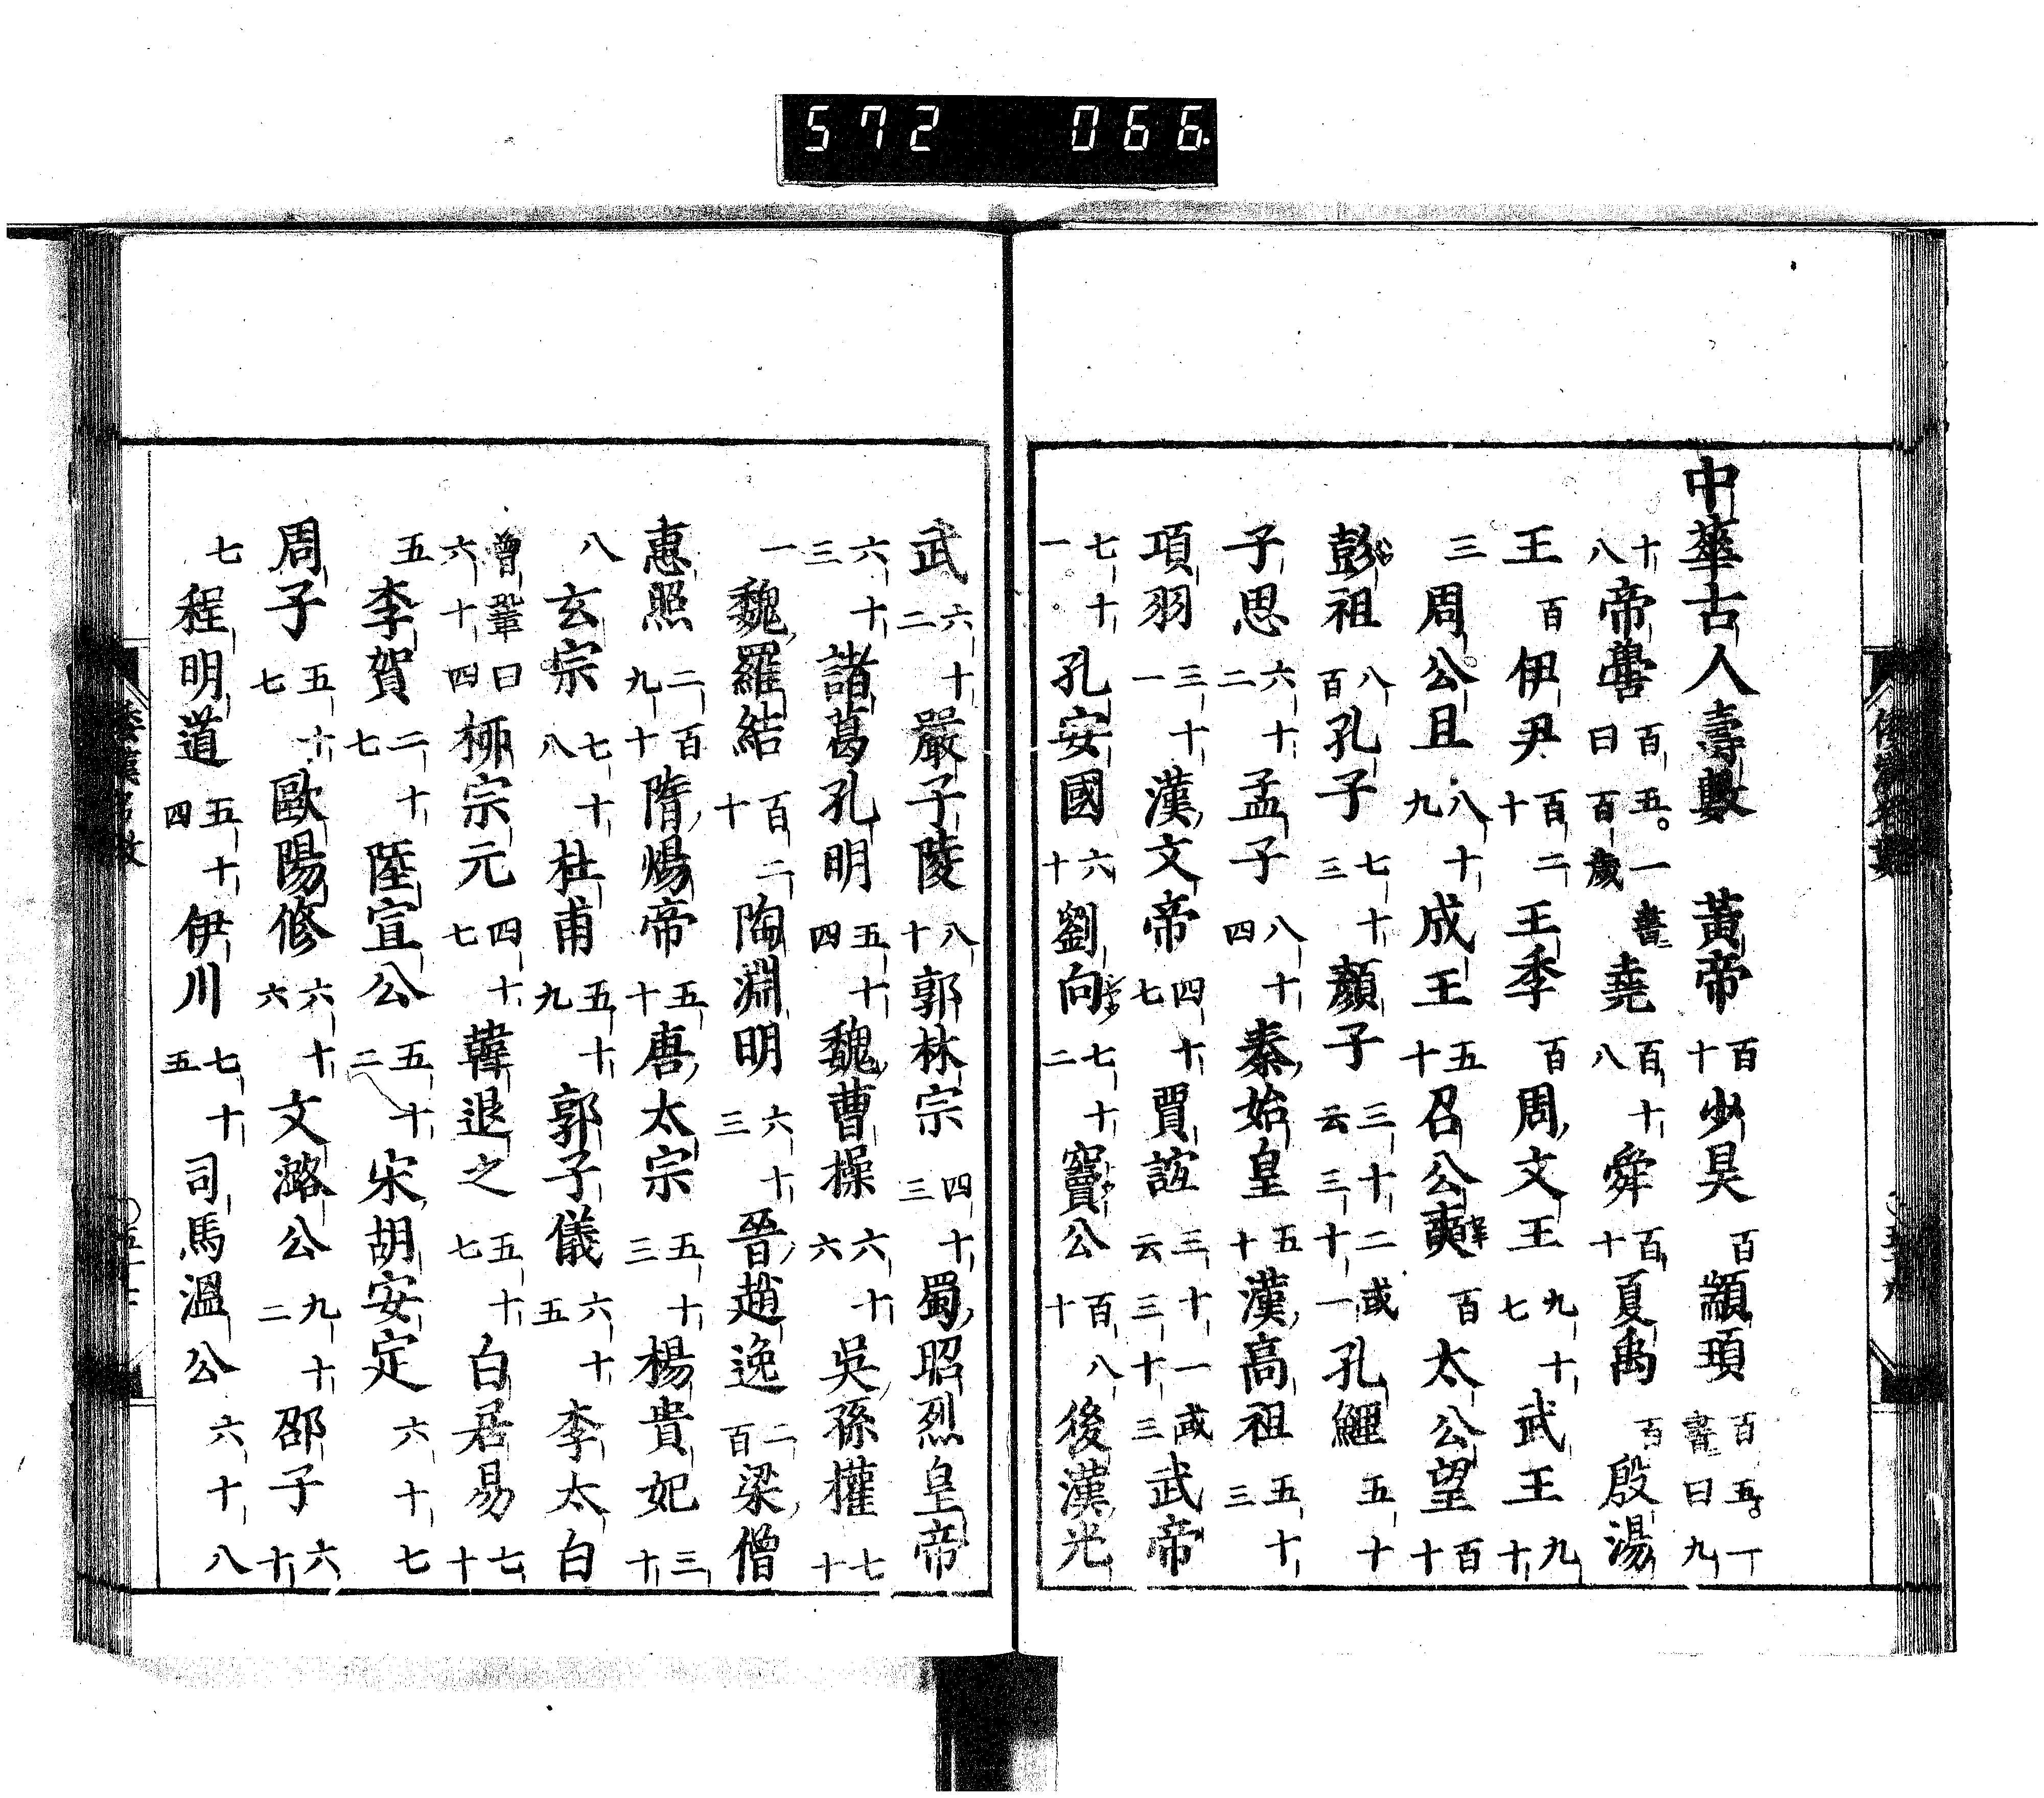 572 066.
中華古人壽數 黃帝百十少昊百顓頊百五。一書曰九
十八帝嚳百五。一書曰百歲堯百十八舜百十夏禹百殷湯
王百伊尹百二十王季百周文王九十七武王九十
三周公且八十九成王五十召公奭百太公望百十
彭祖八百孔子七十三顏子三十二或云三十一孔鯉五十
子思六十二孟子八十四秦始皇五十漢高祖五十三
項羽三十一漢文帝四十七賈誼三十一或云三十三武帝
七十一。孔安國六十劉向七十二竇公百八十後漢光
武六十二嚴子陵八十郭林宗四十三蜀昭烈皇帝
六十三諸葛孔明五十四魏曹操六十六吳孫權七十
一魏羅結百二十陶淵明六十三晉趙逸二百梁僧
惠照二百九十隋煬帝五十唐太宗五十三楊貴妃三十
八玄宗七十八杜甫五十九郭子儀六十五李太白
曾鞏曰六十四柳宗元四十七韓退之五十七白居易七十
五李賀二十七陸宣公五十二宋胡安定六十七
周子五十七歐陽修六十六文潞公九十二邵子六十
七程明道五十四伊川七十五司馬溫公六十八